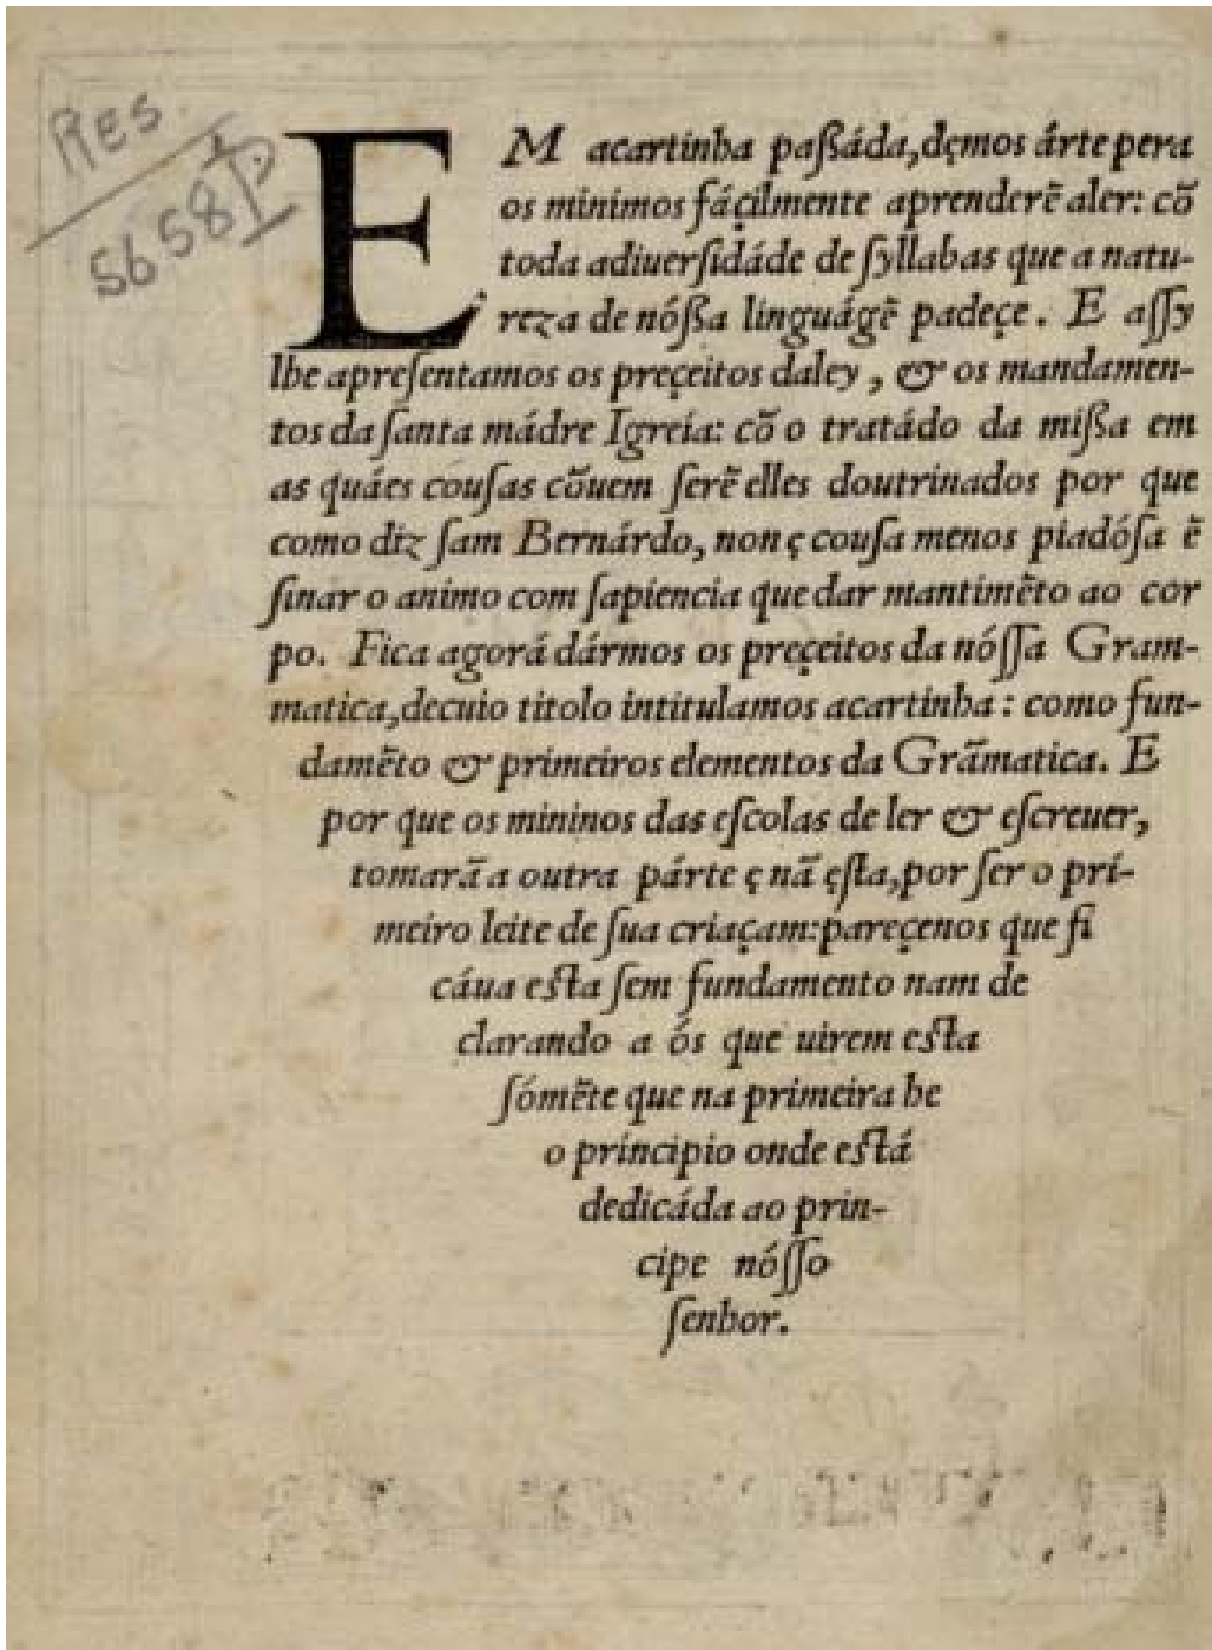 Res.
5658 P.
EM acartinha paßáda,dęmos árte pera
os mininos fáçilmente aprenderẽ aler: cõ
toda adiuerſidáde de ſyllabas que a natu-
reza de nóßa linguágẽ padeçe. E aſſy
lhe apreſentamos os preçeitos daley, & os mandamen-
tos da ſanta mádre Igreia: cõ o tratádo da mißa em
as quáes couſas cõuem ſerẽ elles doutrinados por que
como diz ſam Bernárdo, non ę couſa menos piadóſa ẽ
ſinar o animo com ſapiencia que dar mantimẽto ao cor
po. Fica agorá dármos os preçeitos da nóſſa Gram-
matica,decuio titolo intitulamos acartinha: como fun-
damẽto & primeiros elementos da Grãmatica. E
por que os mininos das eſcolas de ler & eſcreuer,
tomarã a outra párte ę nã ęſta,por ſer o pri-
meiro leite de ſua criaçam:pareçenos que fi
cáua eſta ſem fundamento nam de
clarando a ós que uirem eſta
ſómẽte que na primeira he
o principio onde eſtá
dedicáda ao prin-
cipe nóſſo
ſenhor.